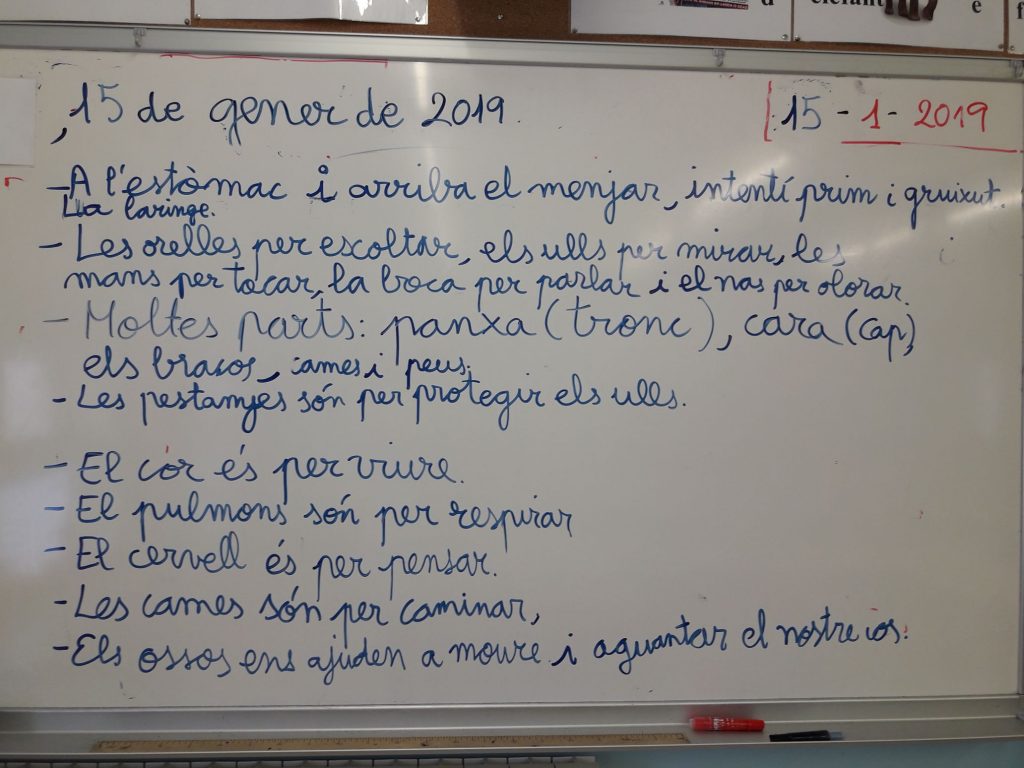 15 de gener de 2019.
15 - 1 - 2019
- A l'estòmac i arriba el menjar, intentí prim i gruixut.
La laringe.
- Les orelles per escoltar, els ulls per mirar, les
mans per tocar, la boca per parlar i el nas per olorar.
- Moltes parts: panxa (tronc), cara (cap)
els braços, cames i peus.
- Les pestanyes són per protegir els ulls.
- El cor és per viure.
- El pulmons són per respirar
- El cervell és per pensar.
- Les cames són per caminar,
- Els ossos ens ajuden a moure i aguantar el nostre cos.